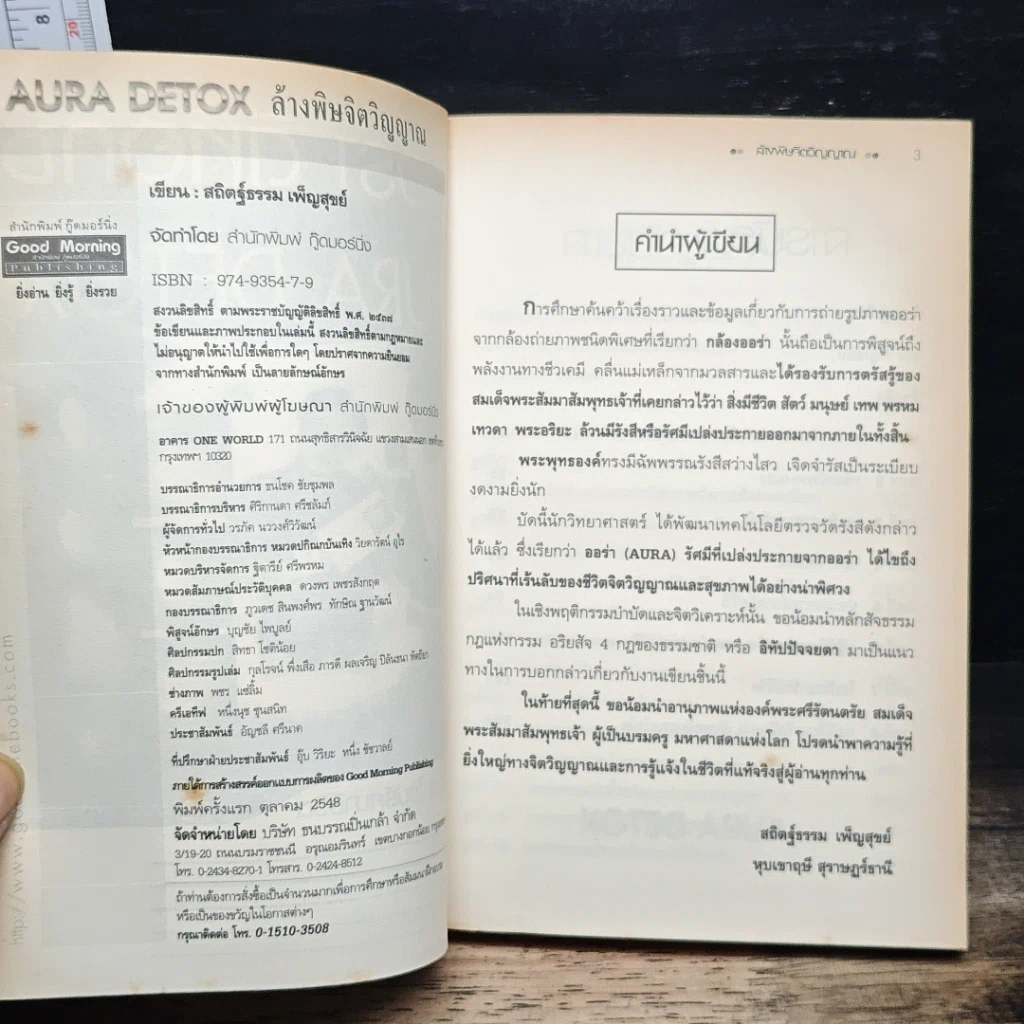 AURA DETOX ล้างพิษจิตวิญญาณ
เขียน : สถิตฐ์ธรรม เพ็ญสุขย์
สำนักพิมพ์ กู๊ดมอร์นิ่ง
Good Morning
สำนักพิมพ์ กู๊ดมอร์นิ่ง
Publishing
ยิ่งอ่าน ยิ่งรู้ ยิ่งรวย
จัดทำโดย สำนักพิมพ์ กู๊ดมอร์นิ่ง
ISBN : 974-9354-7-9
สงวนลิขสิทธิ์ ตามพระราชบัญญัติลิขสิทธิ์ พ.ศ. ๒๕๓๗
ข้อเขียนและภาพประกอบในเล่มนี้ สงวนลิขสิทธิ์ตามกฎหมายและ
ไม่อนุญาตให้นำไปใช้เพื่อการใดๆ โดยปราศจากความยินยอม
จากทางสำนักพิมพ์ เป็นลายลักษณ์อักษร
เจ้าของผู้พิมพ์ผู้โฆษณา สำนักพิมพ์ กู๊ดมอร์นิ่ง
อาคาร ONE WORLD 171 ถนนสุทธิสารวินิจฉัย แขวงสามเสนนอก
กรุงเทพฯ 10320
บรรณาธิการอำนวยการ ธนโชค ชัยชุมพล
บรรณาธิการบริหาร ศิริกานดา ศรีชลัมภ์
ผู้จัดการทั่วไป วรภัค นววงศ์วิวัฒน์
หัวหน้ากองบรรณาธิการ หมวดปกิณกบันเทิง วิยดารัตน์ อุไร
หมวดบริหารจัดการ ฐิตารีย์ ศรีพรหม
หมวดสัมภาษณ์ประวัติบุคคล ดวงพร เพชรสังกฤต
กองบรรณาธิการ ภูวเดช สินพงศ์พร ทักษิณ ฐานวัฒน์
พิสูจน์อักษร บุญชัย ไพบูลย์
ศิลปกรรมปก สิทธา โชติน้อย
ศิลปกรรมรูปเล่ม กุลโรจน์ พึ่งเสือ ภารดี ผลเจริญ ปิลันธนา
ช่างภาพ พชร แซ่ลิ้ม
ครีเอทีฟ หนึ่งนุช ชูนสนิท
ประชาสัมพันธ์ อัญชลี ศรีนาค
ที่ปรึกษาฝ่ายประชาสัมพันธ์ อุ๊บ วิริยะ หนึ่ง ชัชวาลย์
ภายใต้การสร้างสรรค์ออกแบบการผลิตของ Good Morning Publishing
พิมพ์ครั้งแรก ตุลาคม 2548
จัดจำหน่ายโดย บริษัท ธนบรรณปิ่นเกล้า จำกัด
3/19-20 ถนนบรมราชชนนี อรุณอมรินทร์ เขตบางกอกน้อย
โทร. 0-2434-8270-1 โทรสาร. 0-2424-8512
ถ้าท่านต้องการสั่งซื้อเป็นจำนวนมากเพื่อการศึกษาหรือสัมมนาฝึกอบรม
หรือเป็นของขวัญในโอกาสต่างๆ
กรุณาติดต่อ โทร. 0-1510-3508
ล้างพิษจิตวิญญาณ 3
คำนำผู้เขียน
การศึกษาค้นคว้าเรื่องราวและข้อมูลเกี่ยวกับการถ่ายรูปภาพออร่า
จากกล้องถ่ายภาพชนิดพิเศษที่เรียกว่า กล้องออร่า นั้นถือเป็นการพิสูจน์ถึง
พลังงานทางชีวเคมี คลื่นแม่เหล็กจากมวลสารและได้รองรับการตรัสรู้ของ
สมเด็จพระสัมมาสัมพุทธเจ้าที่เคยกล่าวไว้ว่า สิ่งมีชีวิต สัตว์ มนุษย์ เทพ พรหม
เทวดา พระอริยะ ล้วนมีรังสีหรือรัศมีเปล่งประกายออกมาจากภายในทั้งสิ้น
พระพุทธองค์ทรงมีฉัพพรรณรังสีสว่างไสว เจิดจำรัสเป็นระเบียบ
งดงามยิ่งนัก
บัดนี้นักวิทยาศาสตร์ ได้พัฒนาเทคโนโลยีตรวจวัดรังสีดังกล่าว
ได้แล้ว ซึ่งเรียกว่า ออร่า (AURA) รัศมีที่เปล่งประกายจากออร่า ได้ไขถึง
ปริศนาที่เร้นลับของชีวิตจิตวิญญาณและสุขภาพได้อย่างน่าพิศวง
ในเชิงพฤติกรรมบำบัดและจิตวิเคราะห์นั้น ขอน้อมนำหลักสัจธรรม
กฎแห่งกรรม อริยสัจ 4 กฎของธรรมชาติ หรือ อิทัปปัจจยตา มาเป็นแนว
ทางในการบอกกล่าวเกี่ยวกับงานเขียนชิ้นนี้
ในท้ายที่สุดนี้ ขอน้อมนำอานุภาพแห่งองค์พระศรีรัตนตรัย สมเด็จ
พระสัมมาสัมพุทธเจ้า ผู้เป็นบรมครู มหาศาสดาแห่งโลก โปรดนำพาความรู้ที่
ยิ่งใหญ่ทางจิตวิญญาณและการรู้แจ้งในชีวิตที่แท้จริงสู่ผู้อ่านทุกท่าน
สถิตฐ์ธรรม เพ็ญสุขย์
หุบเขาฤๅษี สุราษฎร์ธานี
8
20